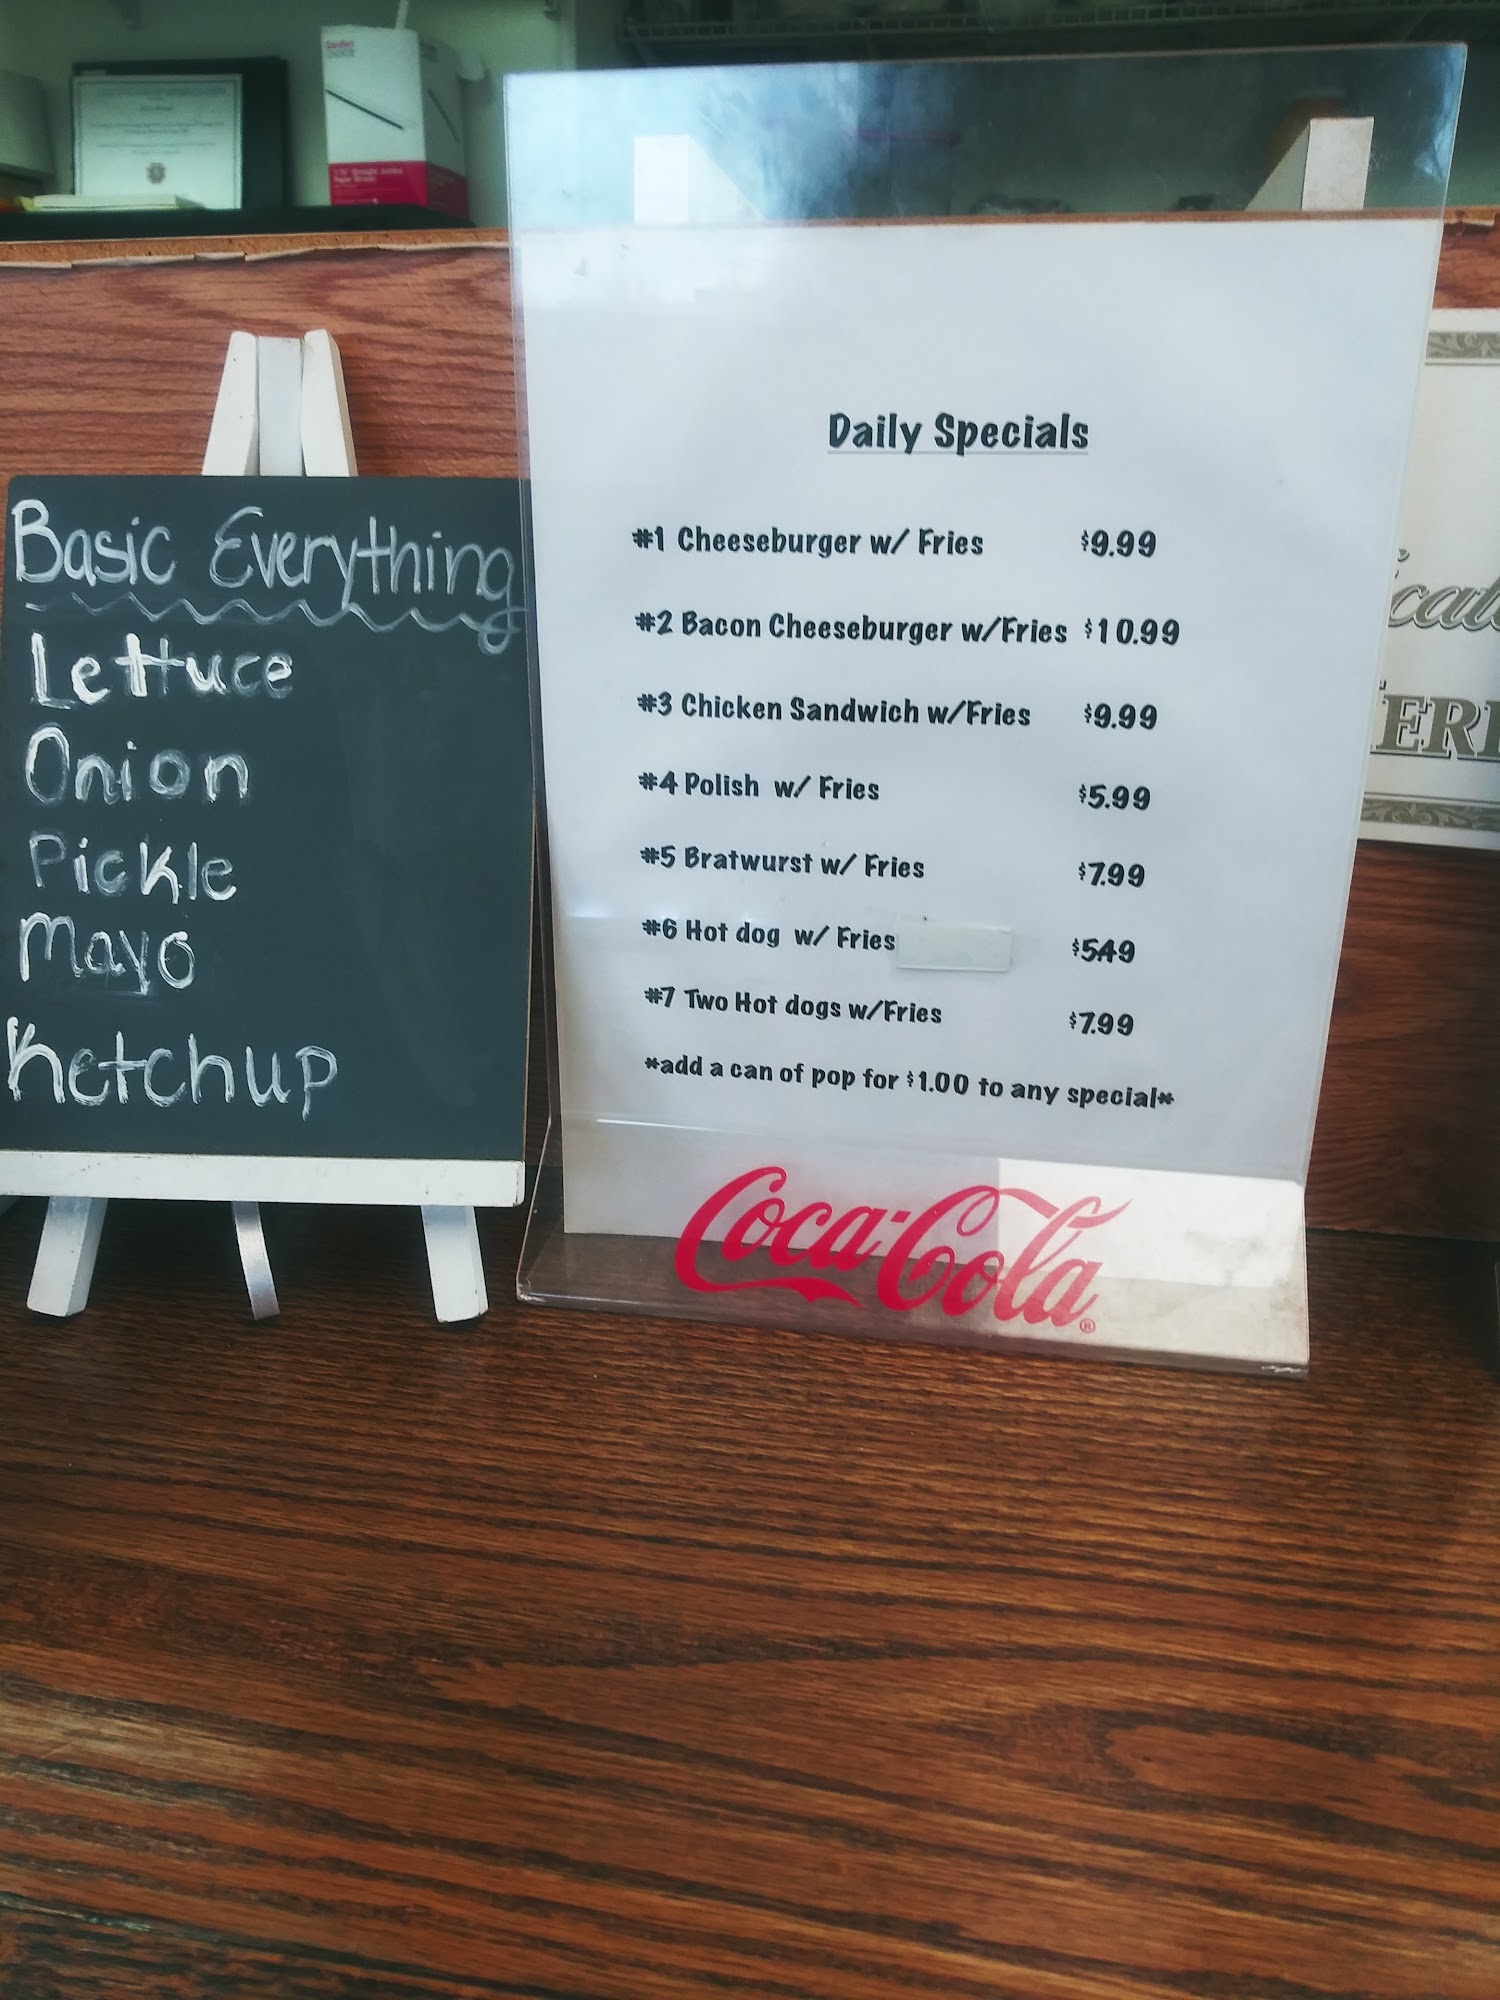 Basic Everything
Lettuce
Onion
Pickle
Mayo
Ketchup
Daily Specials
#1 Cheeseburger w/ Fries $9.99
#2 Bacon Cheeseburger w/Fries $10.99
#3 Chicken Sandwich w/Fries $9.99
#4 Polish w/ Fries $5.99
#5 Bratwurst w/ Fries $7.99
#6 Hot dog w/ Fries $5.49
#7 Two Hot dogs w/Fries $7.99
*add a can of pop for $1.00 to any special*
Coca-Cola
®